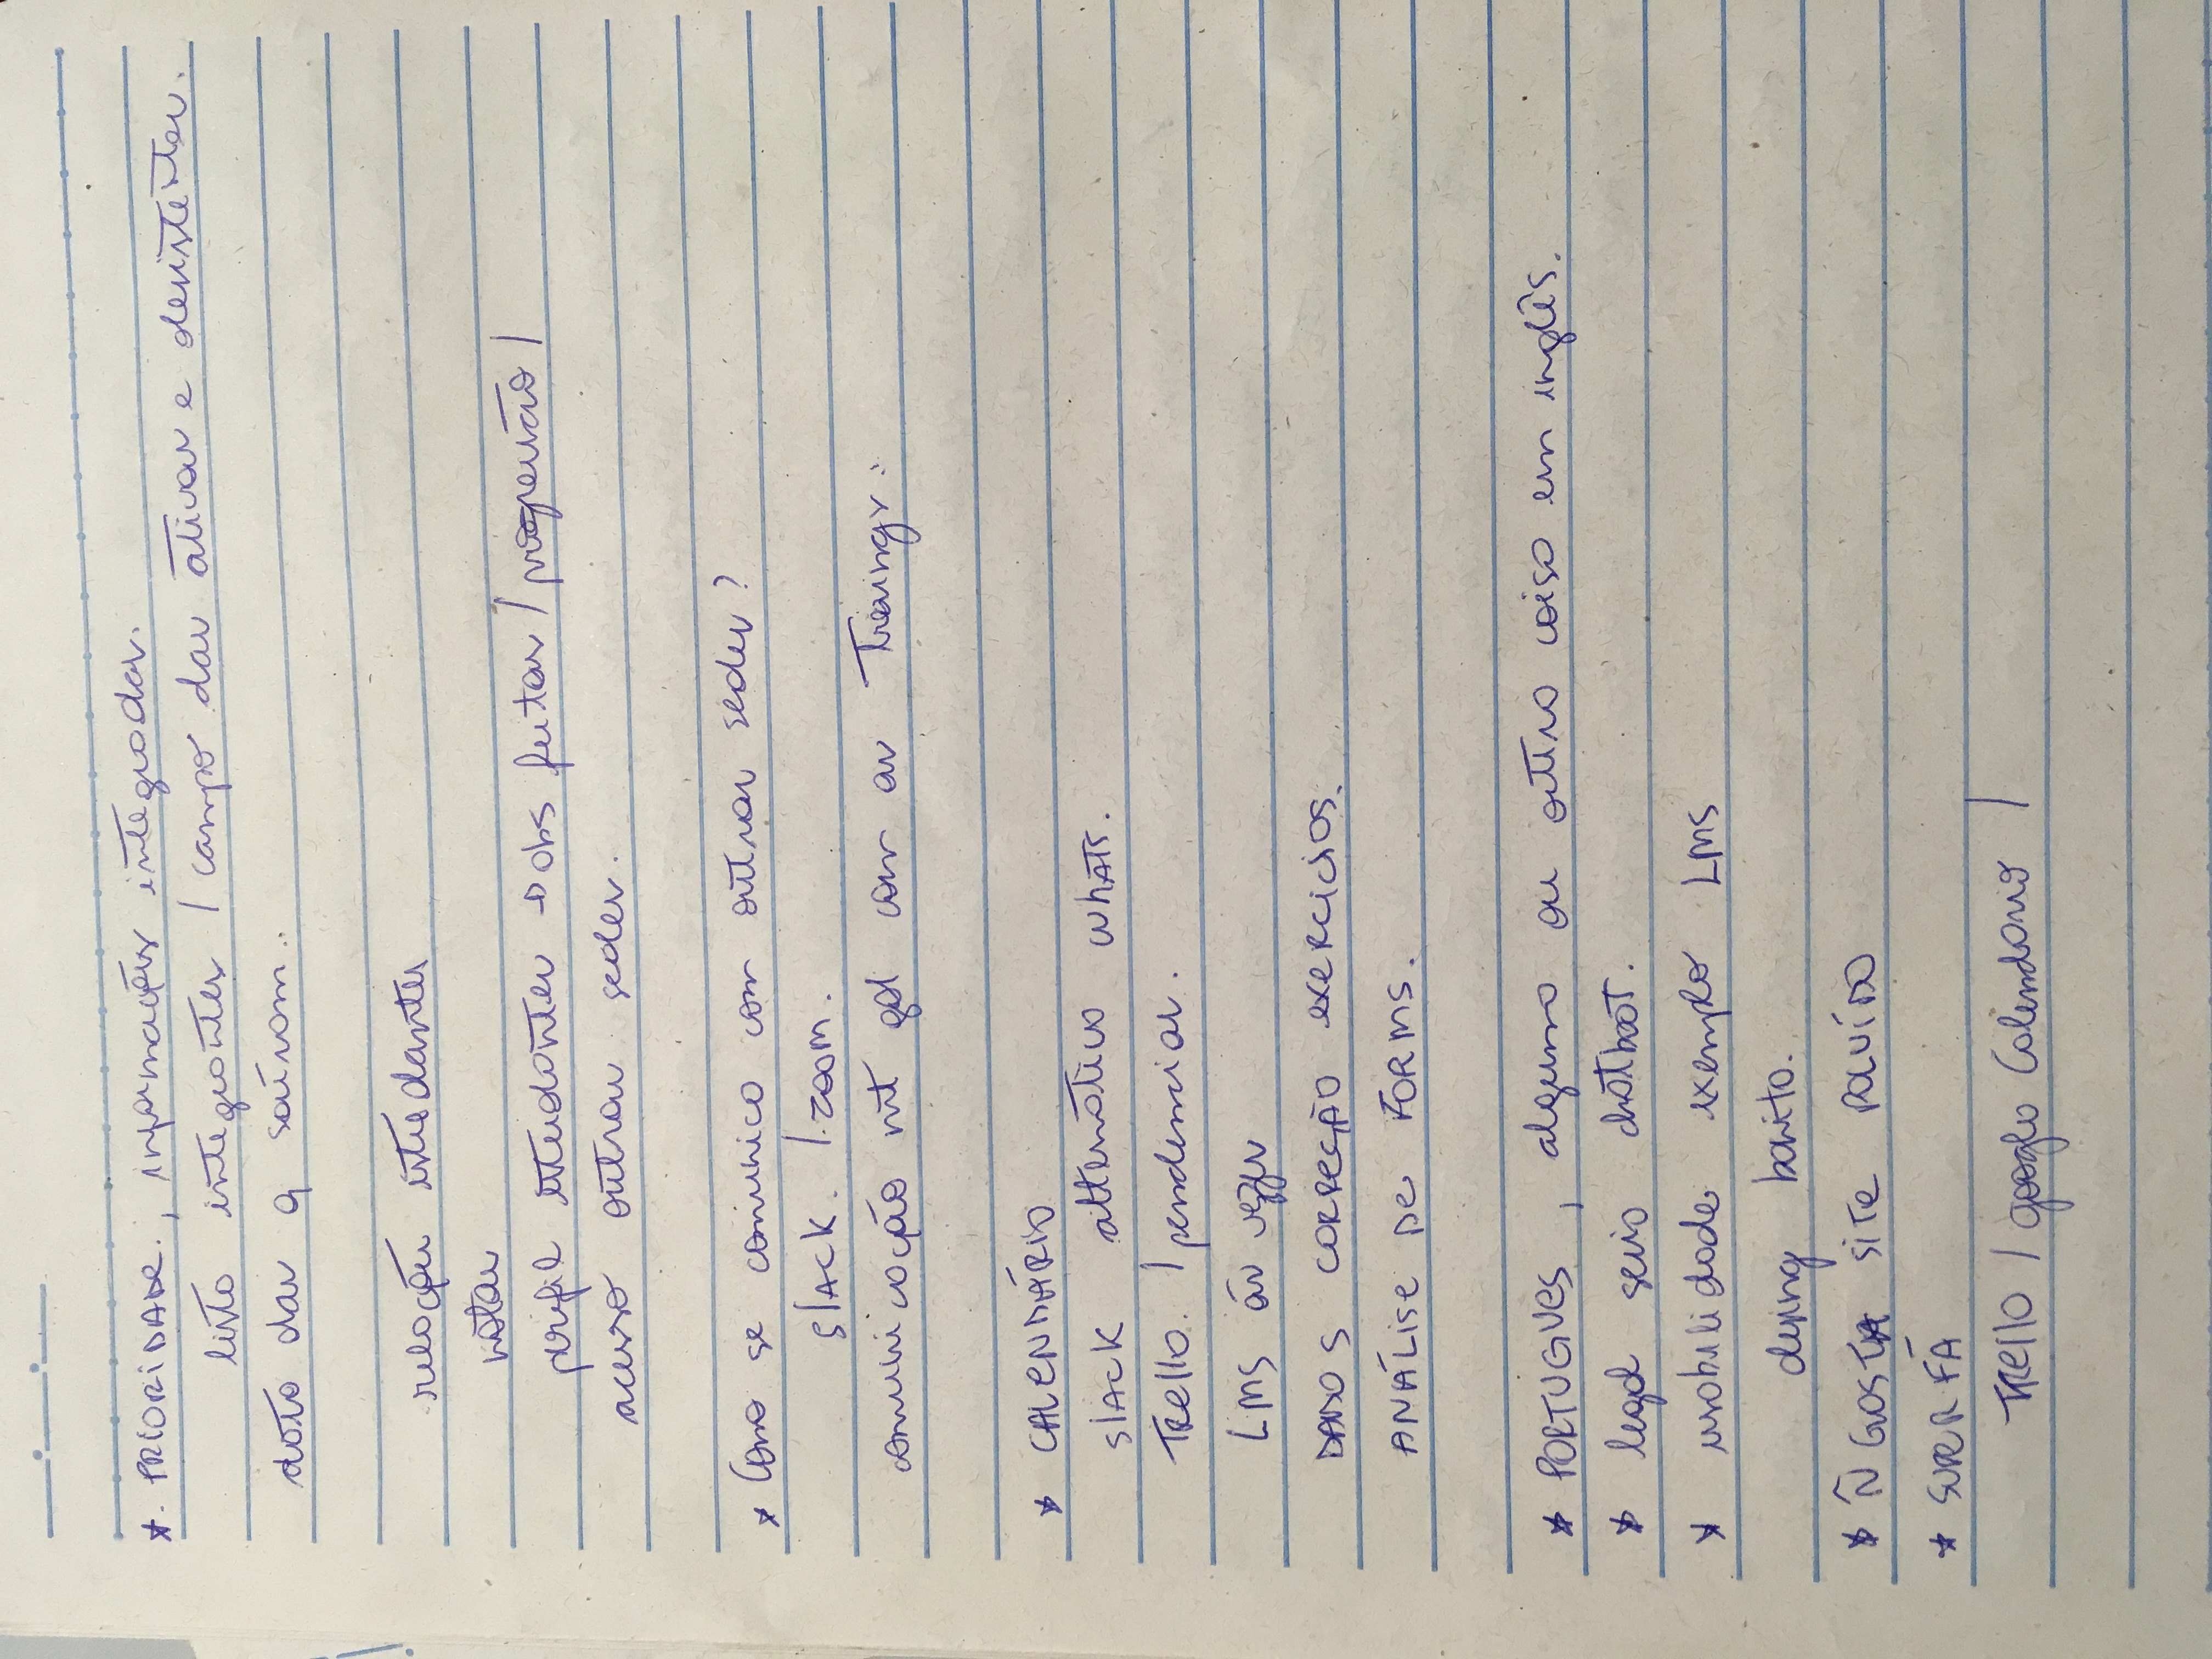 * PRIORIDADE., informações integradas.
lista integrantes / campo das ativas e desistentes.
data das q saíram..
relação estudantes
notas
perfil estudantes → obs feitas / progressão /
acesso outras sedes.
* Como se comunica com outras sedes?
slack. / zoom.
comunicação mt gd com as Trainings.
* CALENDÁRIO
slack alternativo whats.
Trello. / pendencias.
LMS ás vezes
DADOS CORREÇÃO exercicios.
ANÁLISE DE FORMS.
* PORTUGUES, alguma ou outra coisa em inglês.
* legal seria chatboot.
* usabilidade exemplo LMS
desing bonito.
* Ñ GOSTA SITE POLUÍDO
* SUPER FÃ
Trello / google Calendario /